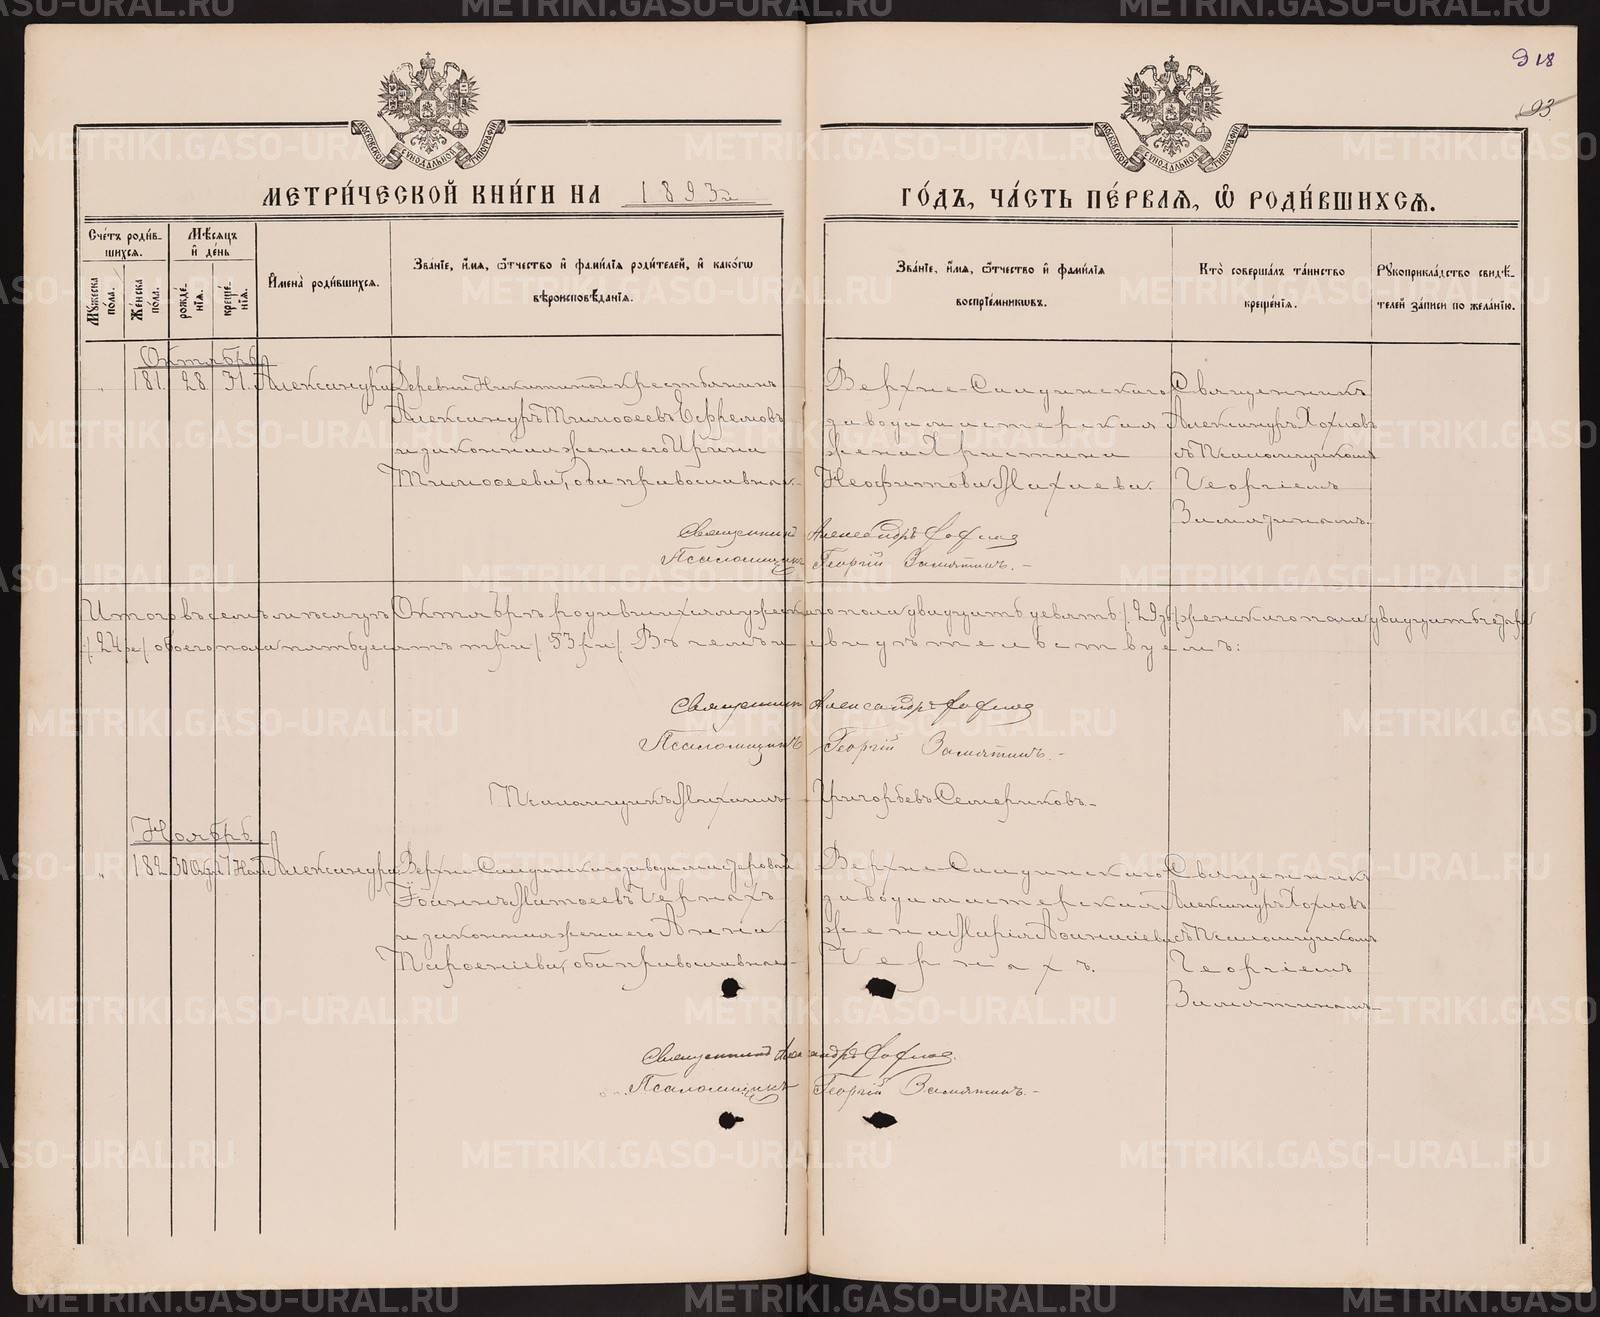 918
93
МОСКОВСКОЙ СѴНОДАЛЬНОЙ ТИПОГРАФІИ
МОСКОВСКОЙ СѴНОДАЛЬНОЙ ТИПОГРАФІИ
МЕТРИ́ЧЕСКОЙ КНИ́ГИ НА 1893й ГО́ДЪ, ЧА́СТЬ ПЕ́РВАѦ, Ѽ РОДИ́ВШИХСѦ.
Сче́тъ роди́в-
шихсѧ.
Мѣ́сѧцъ
и҆ де́нь
Мꙋ́жеска
по́ла.
Же́нска
по́ла.
рожде́-
нїѧ.
креще́-
нїѧ.
И҆мена̀ роди́вшихсѧ.
Зва́нїе, и҆́мѧ, ѻ҆́тчество и҆ фами́лїѧ роди́телей, и҆ како́гѡ
вѣроисповѣ́данїѧ.
Зва́нїе, и҆́мѧ, ѻ҆́тчество и҆ фами́лїѧ
воспрїе́мникѡвъ.
Кто̀ соверша́лъ та́инство
креще́нїѧ.
Рꙋкоприкла́дство свидѣ́-
телей за́писи по жела́нїю.
Октябрь
" 181. 28 31. Александра Деревни Никитиной крестьянинъ
Александръ Тимофеевъ Ефремовъ
и законная жена его Ирина
Тимофеева, оба православные.
Верхне-Салдинскаго
завода мастерская
жена Христина
Неофитова Махнева.
Священникъ
Александръ Хохловъ
съ Псаломщикомъ
Георгіемъ
Замятинымъ.
Священникъ Александръ Хохлов
Псаломщикъ Георгій Замятинъ.
Итого въ семъ мѣсяцѣ Октябрѣ родившихся мужескаго пола двадцать девять /29ть/ женскаго пола двадцать четыре
/24ре/ обоего пола пятьдесятъ три /53ри/ Въ чемъ и свидѣтельствуемъ:
Священник Александръ Хохлов
Псаломщикъ Георгій Замятинъ.
Псаломщикъ Михаилъ Григорьевъ Семериковъ.
Ноябрь
" 182 30 Окт 1 Ноя Александра Верхне-Салдинскаго завода мастеровой
Іоаннъ Матфеевъ Чернахъ
и законная жена его Анна
Парфеніева, оба православные.
Верхне-Салдинскаго
завода мастерская
жена Марія Афанасіева
Чернахъ.
Священникъ
Александръ Хохловъ
съ Псаломщикомъ
Георгіемъ
Замятинымъ
Священникъ Александръ Хохлов.
Псаломщикъ Георгій Замятинъ.
METRIKI.GASO-URAL.RU